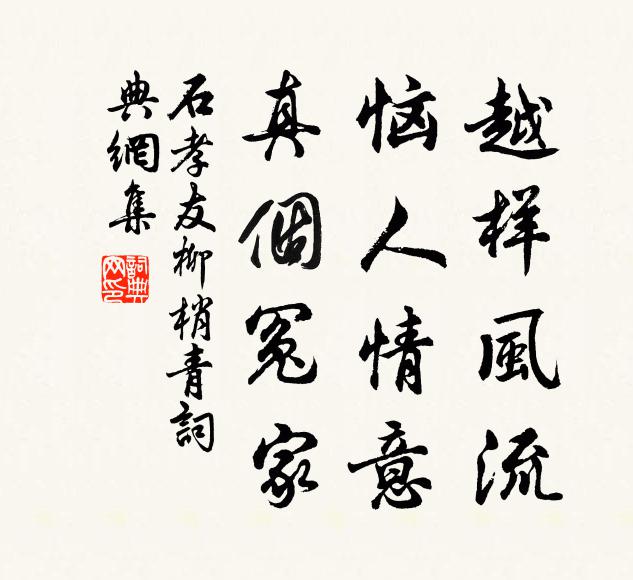 越样風流
恼人情意
真個冤家
石孝友柳梢青詞
典網集
詞典网印